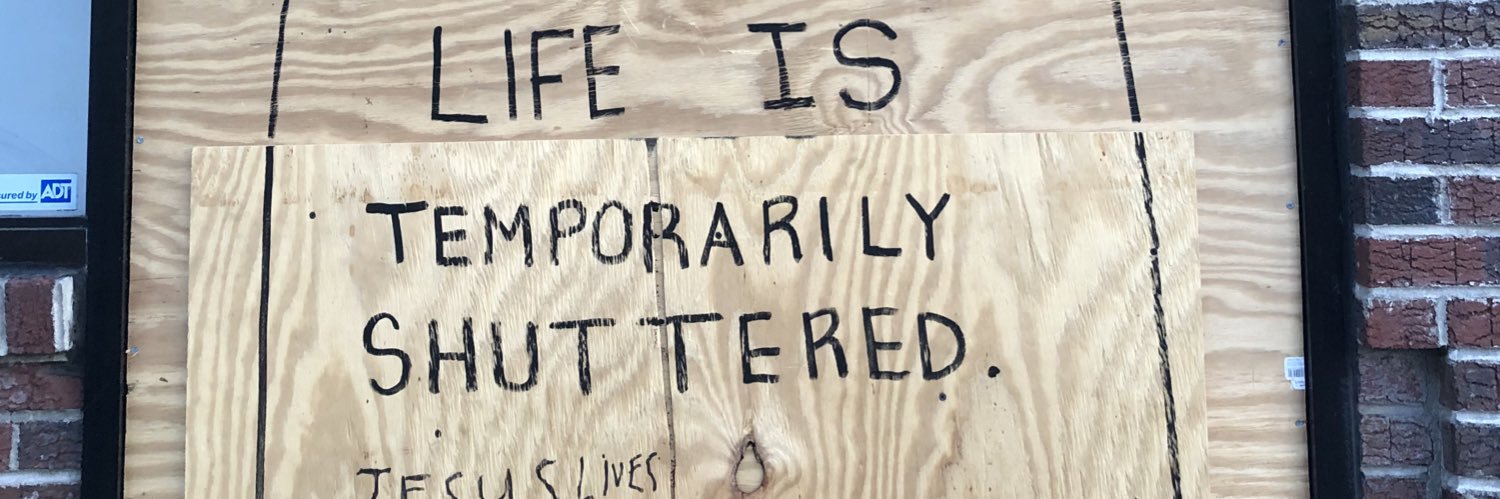 LIFE IS
TEMPORARILY
SHUTTERED.
JESUS LIVES
ured by ADT